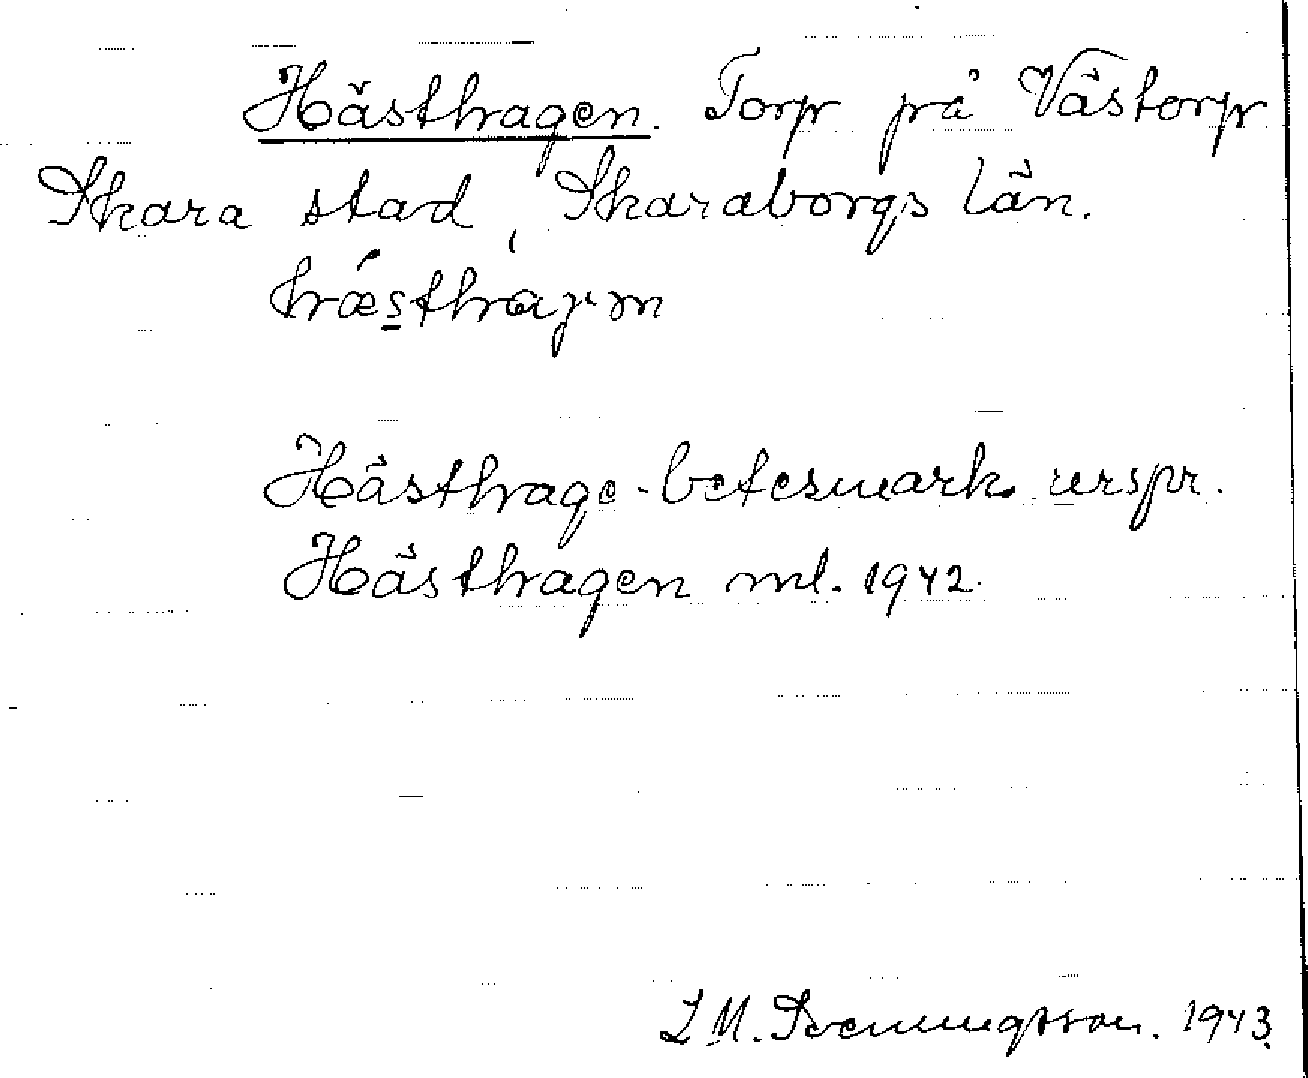 Hästhagen. Torp på Västorp
Skara stad, Skaraborgs län.
hǽsthàgen
Hästhage - betesmark urspr.
Hästhagen ml. 1942.
L M. Svenningsson. 1943.